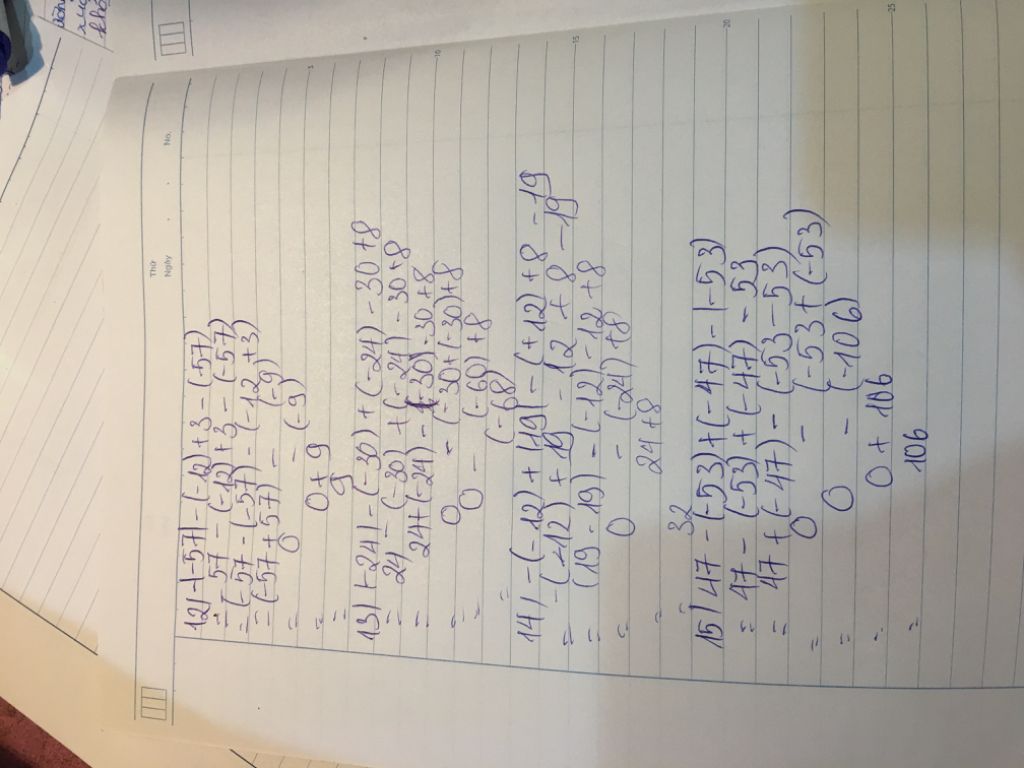 Thứ
Ngày . . No.
12) -|-57| - (-12) + 3 - (-57)
= - 57 - (-12) + 3 - (-57)
= (-57 - (-57) - (-12 + 3)
= (-57 + 57) - (-9)
= 0 - (-9)
= 0 + 9
= 9
13) |-24| - (-30) + (-24) - 30 + 8
= 24 - (-30) + (-24) - 30 + 8
= 24 + (-24) - (-30) - 30 + 8
= 0 - (-30 + (-30) + 8
= 0 - (-60) + 8
= (-68)
14) - (-12) + |19| - (+12) + 8 - 19
= - (-12) + 19 - 12 + 8 - 19
= (19 - 19) - (-12) - 12 + 8
= 0 - (-24) + 8
= 24 + 8
= 32
15) 47 - (-53) + (-47) - |-53|
= 47 - (-53) + (-47) - 53
= 47 + (-47) - (-53 - 53)
= 0 - (-53 + (-53)
= 0 - (-106)
= 0 + 106
= 106
5
10
15
20
25